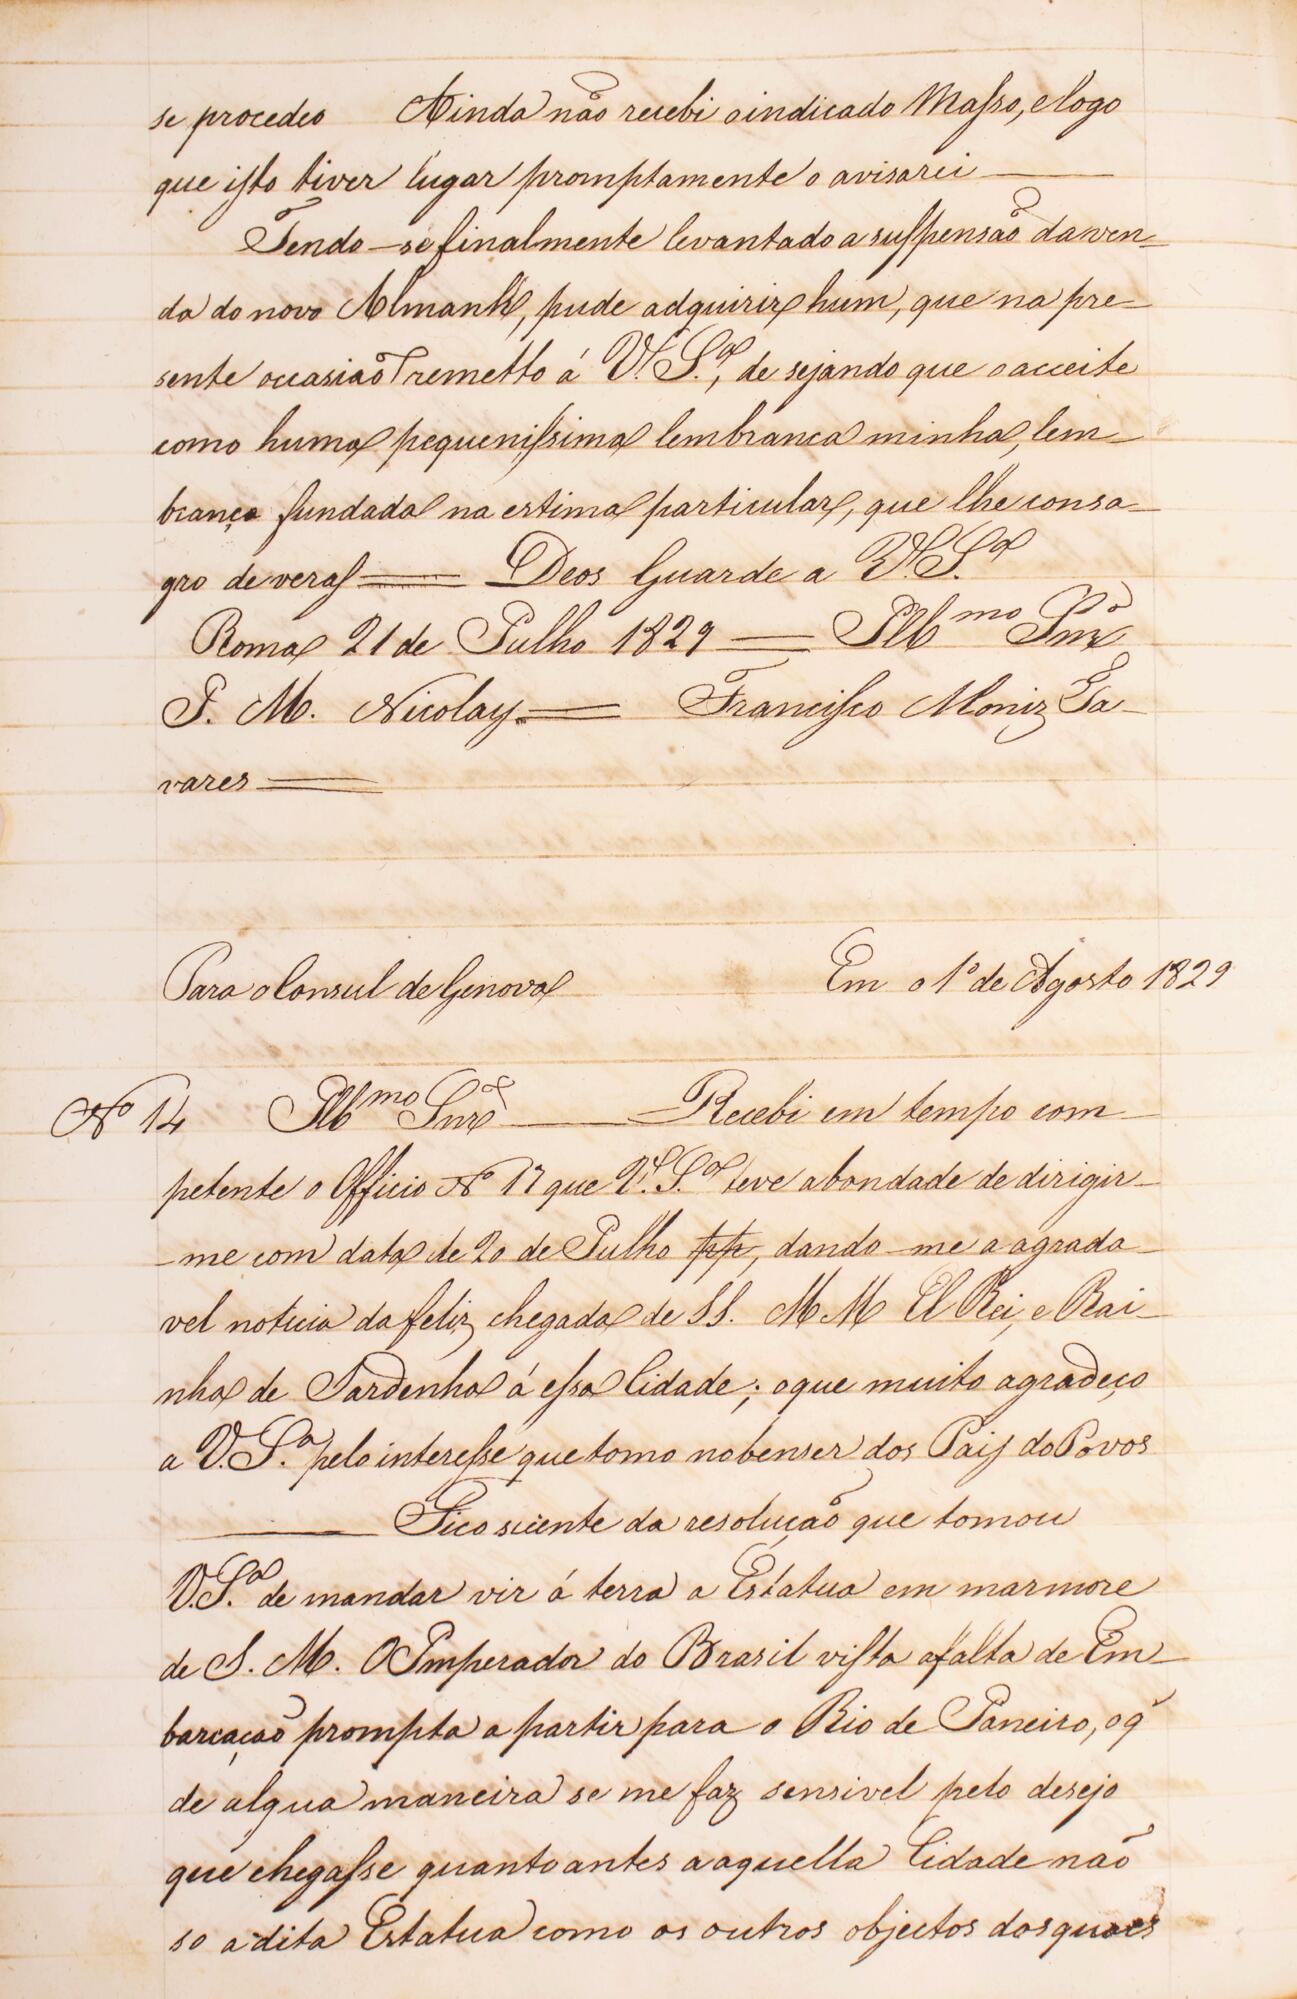 se procedeo Ainda não recebi o indicado Masso, e logo
que isto tiver lugar promptamente o avisarei ——
Tendo-se finalmente levantado a suspensão da ven-
da do novo Almank, pude adquirir hum, que na pre-
sente occasião remetto á V. S.ª, desejando que o acceite
como huma pequenissima lembranca minha, lem-
brança fundada na estima particular, que lhe consa-
gro de veras == Deos Guarde a V. S.ª
Roma 21 de Julho 1829 == Ill.mo Snr.
J. M. Nicolay. == Francisco Moniz Ta-
vares ==
Para o Consul de Genova Em o 1º de Agosto 1829
Nº 14 Ill.mo Snr. —— Recebi em tempo com-
petente o Officio Nº 17 que V. S.ª teve a bondade de dirigir-
-me com data de 20 de Julho pp, dando-me a agrada-
vel noticia da feliz chegada de SS. M M El Rei, e Rai-
nha de Sardenha á essa Cidade; o que muito agradeço
a V. S.ª pelo interesse que tomo no bem ser dos Pais do Povos
—— Fico sciente da resolução que tomou
V. S.ª de mandar vir á terra a Estatua em marmore
de S. M. O Imperador do Brasil vista a falta de Em-
barcação prompta a partir para o Rio de Janeiro, o q̃
de algua maneira se me faz sensivel pelo desejo
que chegasse quanto antes a aquella Cidade não
so a dita Estatua como os outros objectos dos quaes